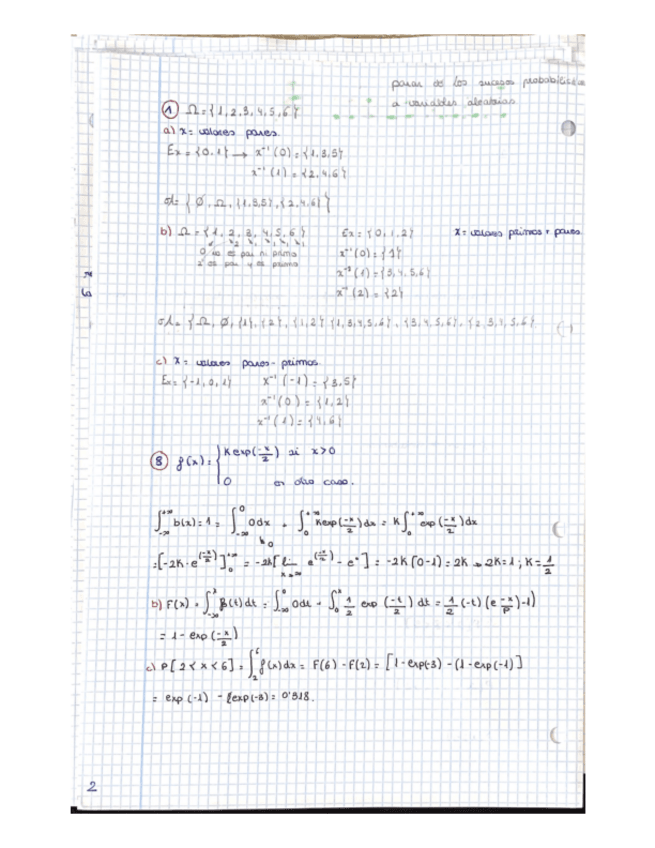 pasar de los sucesos probabilísticos
a variables aleatorias
① Ω = {1, 2, 3, 4, 5, 6}
a) x = valores pares.
Ex = {0, 1} → x⁻¹(0) = {1,3,5}
x⁻¹(1) = {2,4,6}
A = {Ø, Ω, {1,3,5}, {2,4,6}}
b) Ω = {1, 2, 3, 4, 5, 6} Ex = {0, 1, 2} x = valores primos + pares
0 no es par ni primo x⁻¹(0) = {1}
2 es par y es primo x⁻¹(1) = {3,4,5,6}
x⁻¹(2) = {2}
A = {Ω, Ø, {1}, {2}, {1,2}, {1,3,4,5,6}, {3,4,5,6}, {2,3,4,5,6}
c) x = valores pares - primos
Ex = {-1, 0, 1} x⁻¹(-1) = {3,5}
x⁻¹(0) = {1,2}
x⁻¹(1) = {4,6}
⑧ f(x) = { K exp(-x/2) si x>0
0 en otro caso.
∫₋∞^+∞ f(x) = 1 = ∫₋∞^0 0dx + ∫₀^+∞ K exp(-x/2) dx = K ∫₀^+∞ exp(-x/2) dx
= [-2K · e^(-x/2)]₀^+∞ = -2K [lim x→∞ e^(-x/2) - e°] = -2K [0-1] = 2K → 2K = 1 ; K = 1/2
b) F(x) = ∫₋∞^x f(t) dt = ∫₋∞^0 0dt + ∫₀^x 1/2 exp(-t/2) dt = 1/2 (-t)(e^(-x/p) - 1)
= 1 - exp(-x/2)
c) P[2 < x < 6] = ∫₂^6 f(x) dx = F(6) - F(2) = [1 - exp(-3) - (1 - exp(-1)]
= exp(-1) - [exp(-3) = 0'318.
2